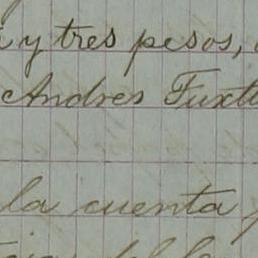 y tres pesos,
Andres Tuxtl
la cuenta